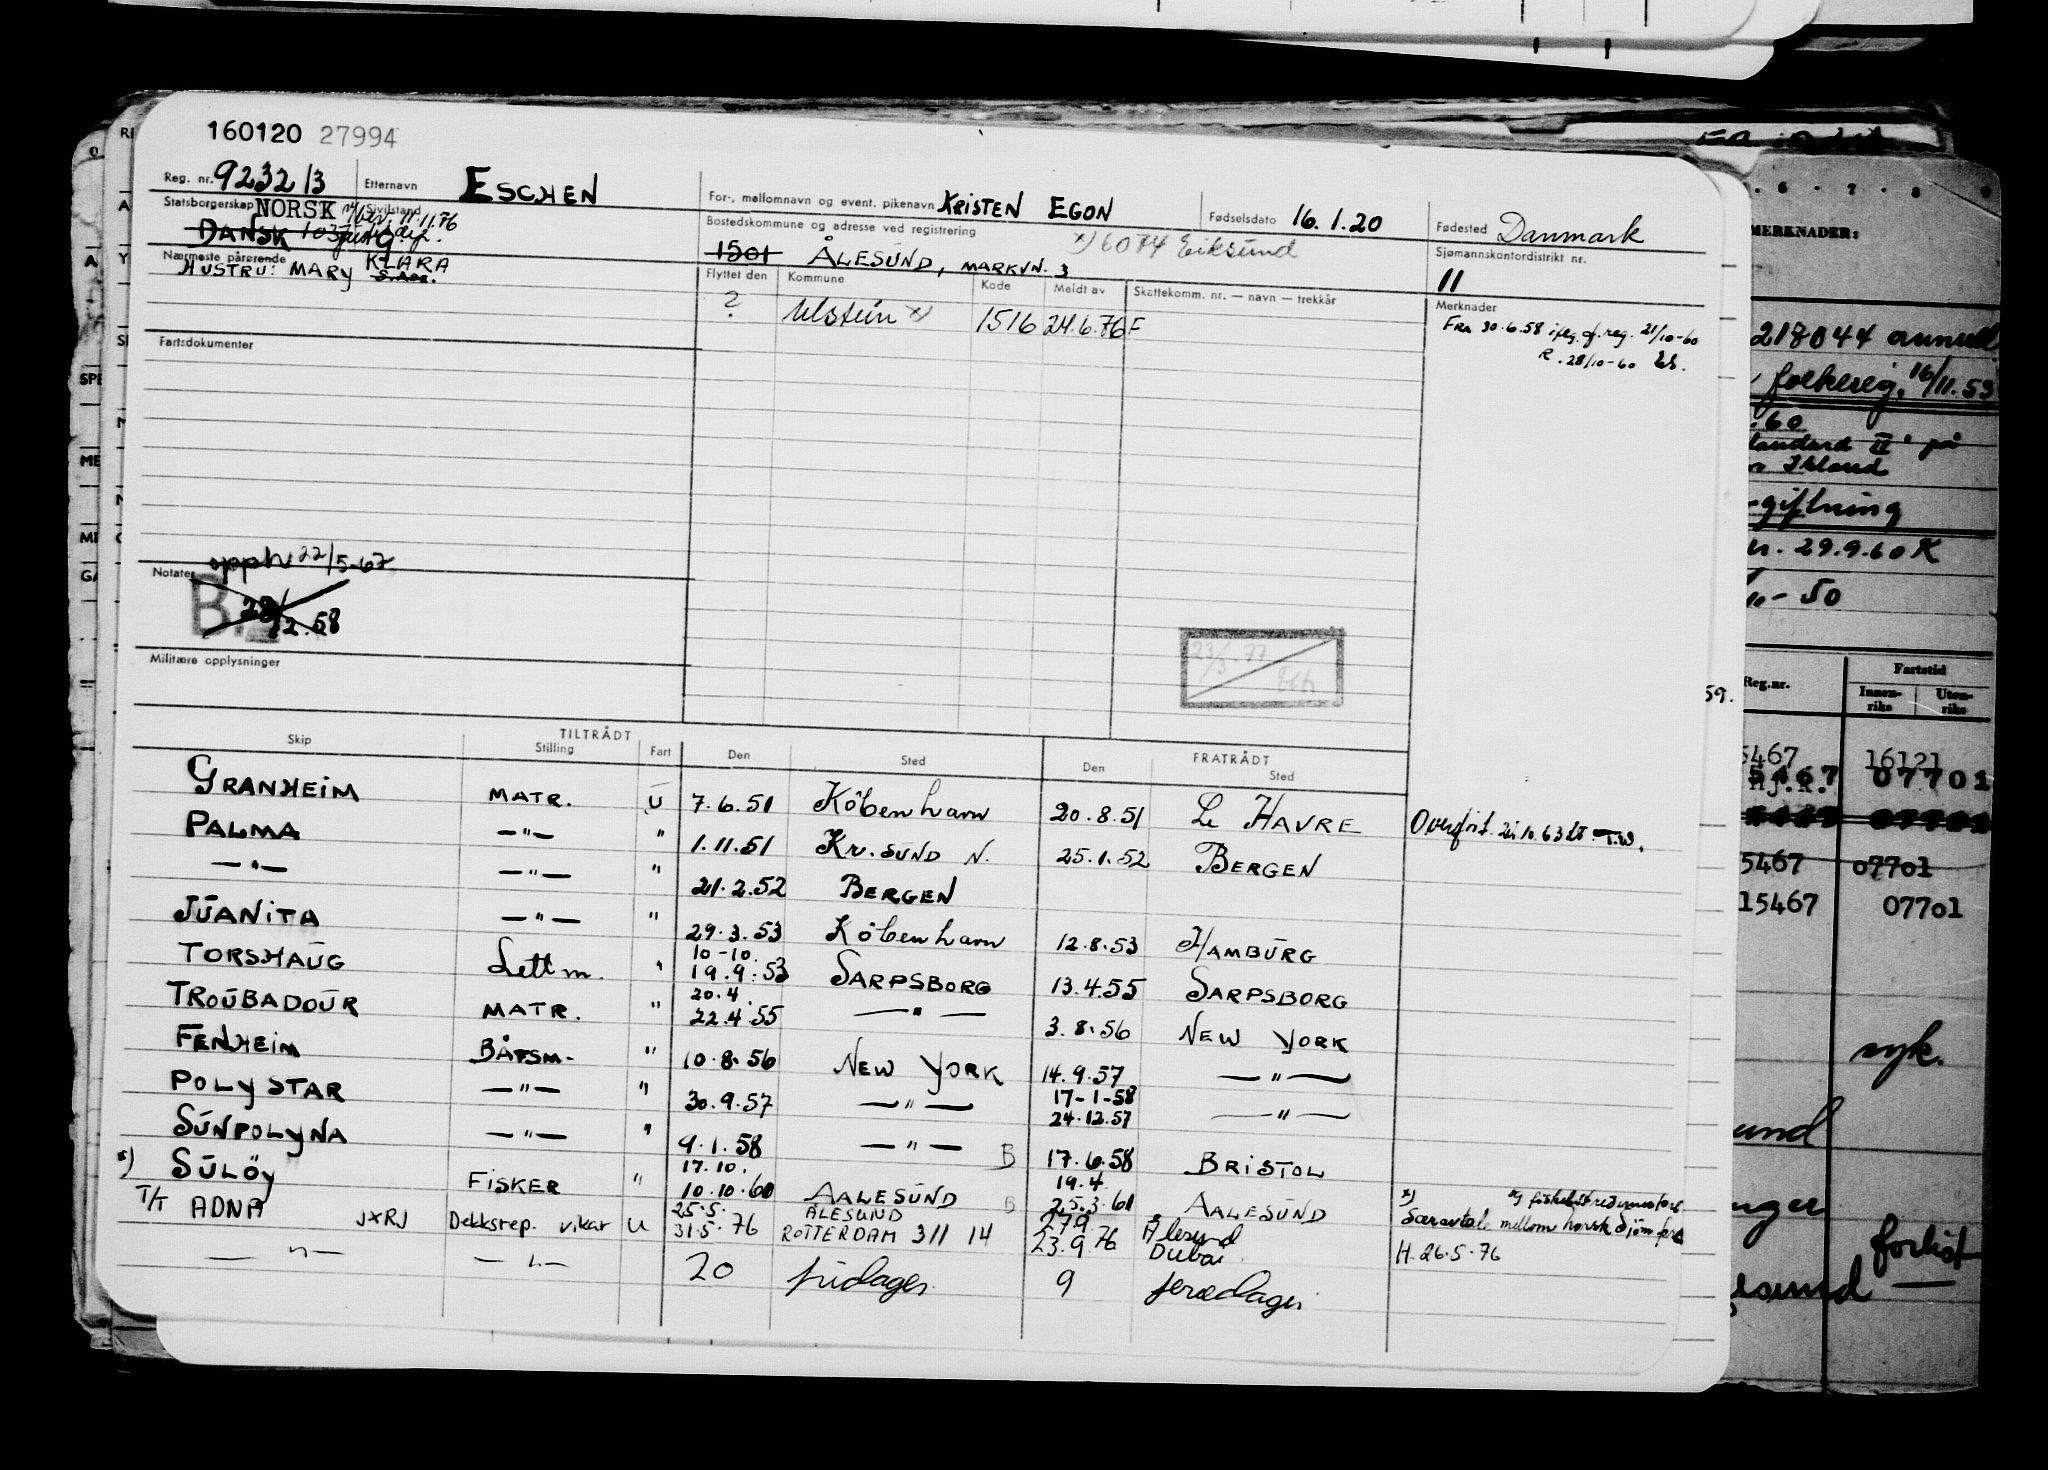 160120 27994
Reg. nr. 9232/3 Etternavn ESCHEN For-, mellomnavn og event. pikenavn KRISTEN EGON Fødselsdato 16.1.20 Fødested Danmark
Statsborgerskap NORSK Sivilstand 11.11.76
DANSK
Bostedskommune og adresse ved registrering x) 6074 Eiksund
1501 ÅLESUND, MARKVN. 3
Sjømannskontordistrikt nr.
11
Nærmeste pårørende
HUSTRU: MARY KLARA
S.Adr.
Flyttet den Kommune Kode Meldt av Skattekomm. nr. — navn — trekkår Merknader
? Ulstein x) 1516 24.6.76 F
FRA 30.6.58 i flg. of. reg. 21/10-60
R. 28/10-60
Fartsdokumenter
Notater
opph 22/5-67
B.
28/2.58
Militære opplysninger
23/3.77
TILTRÅDT FRATRÅDT
Skip Stilling Fart Den Sted Den Sted
GRANHEIM MATR. U 7.6.51 København 20.8.51 Le HAVRE Overført. 10.63 T.W.
PALMA —"— " 1.11.51 Kr.SUND N. 25.1.52 BERGEN
—"— —"— " 21.2.52 BERGEN
JUANITA —"— " 29.3.53 København 12.8.53 HAMBURG
10-10.
TORSHAUG Lettm. " 19.9.53 SARPSBORG 13.4.55 SARPSBORG
20.4.
TROUBADOUR MATR. " 22.4.55 —"— 3.8.56 NEW YORK
FENHEIM BÅTSM. " 10.8.56 NEW YORK 14.9.57 —"—
17-1-58
POLYSTAR —"— " 30.9.57 —"— 24.12.57 —"—
SUNPOLYNA —"— " 9.1.58 —"— B 17.6.58 BRISTOL
17.10. 19.4.
x) SULØY FISKER " 10.10.60 AALESUND B 25.3.61 AALESUND x)
25.5. ÅLESUND 27.9 Ålesund
T/T ADNA JXRJ Dekksrep. vikar U 31.5.76 ROTTERDAM 311 14 23.9.76 Dubai Særavtale mellom norsk sjøm.
H. 26.5.76
—"— —"— 20 fridager 9 feriedager
6 · 7 · 8 9
MERKNADER:
217044 annull
folkereg. 16/11.53
.60
tandard II' på
Island
giftning
29.9.60 K
- 50
59.
Reg.nr. Fartstid
Innen-riks Uten-riks
5467 16121
5467 07701
5467 07701
15467 07701
syk.
und
nger
forlist
sund —